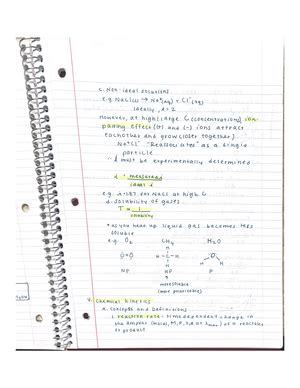 c. Non-ideal solutions
e.g. NaCl(s) → Na⁺(aq) + Cl⁻(aq)
ideally, i = 2
However, at high/large C (concentrations) ion-
pairing effect (+) and (-) ions attract
eachother and grow closer together)
Na⁺Cl⁻ "Reassociates" as a single
particle
∴ i must be experimentally determined
i = measured
ideal i
e.g. i = 1.87 for NaCl at high C
d. Solubility of gases
T = 1
solubility
*as you heat up liquid gas becomes less
soluble
e.g. O₂ CH₄ H₂O
O=O H-C-H O
H H
H H
NP NP P
more soluble
(more polarizable)
V. Chemical Kinetics
A. Concepts and Definitions
1. reaction rate - time dependent change in
the amount (mols), M, P, of a reactant
or product